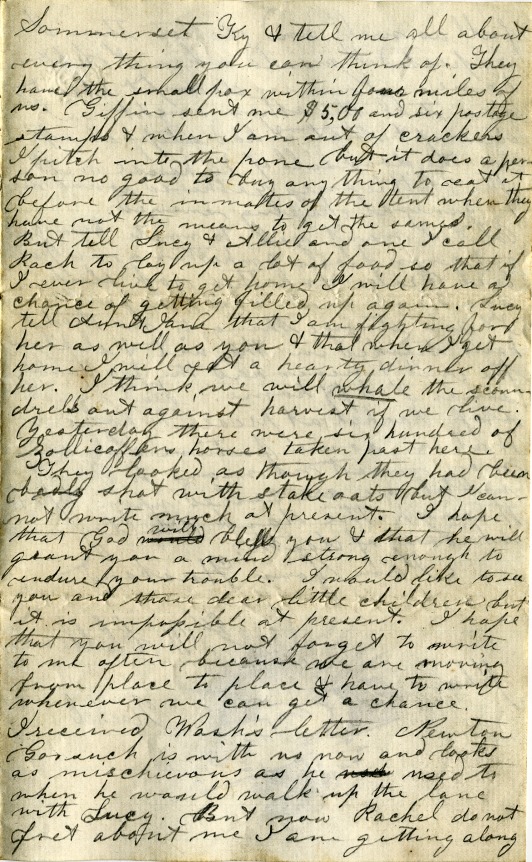 Sommerset Ky & tell me all about
every thing you can think of. They
have the small pox within four miles of
us. Giffin sent me $5,00 and six postage
stamps & when I am out of crackers
I pitch into the pone but it does a per
son no good to buy any thing to eat it
before the inmates of the tent when they
have not the means to get the same.
But tell Lucy & Allie and one I call
Rach to lay up a lot of food so that if
I ever live to get home I will have a
chance of getting filled up again. Lucy
tell Aunt that I am fighting for
her as well as you & that when I get
home I will eat a hearty dinner off
her. I think we will whale the scoun
drels out against harvest if we live.
Yesterday there were six hundred of
Zollicoffers horses taken past here.
They looked as though they had been
badly spot with stake oats but I can
not write much at present. I hope
that God will bless you & that he will
grant you a mind strong enough to
endure your trouble. I would like to see
you and those dear little children but
it is impossible at present. I hope
that you will not forget to write
to me often because we are moving
from place to place & have to write
whenever we can get a chance.
I received Wash's letter. Newton
Gorsuch is with us now and looks
as mischievous as he used to
when he would walk up the lane
with Lucy. But now Rachel do not
fret about me I am getting along